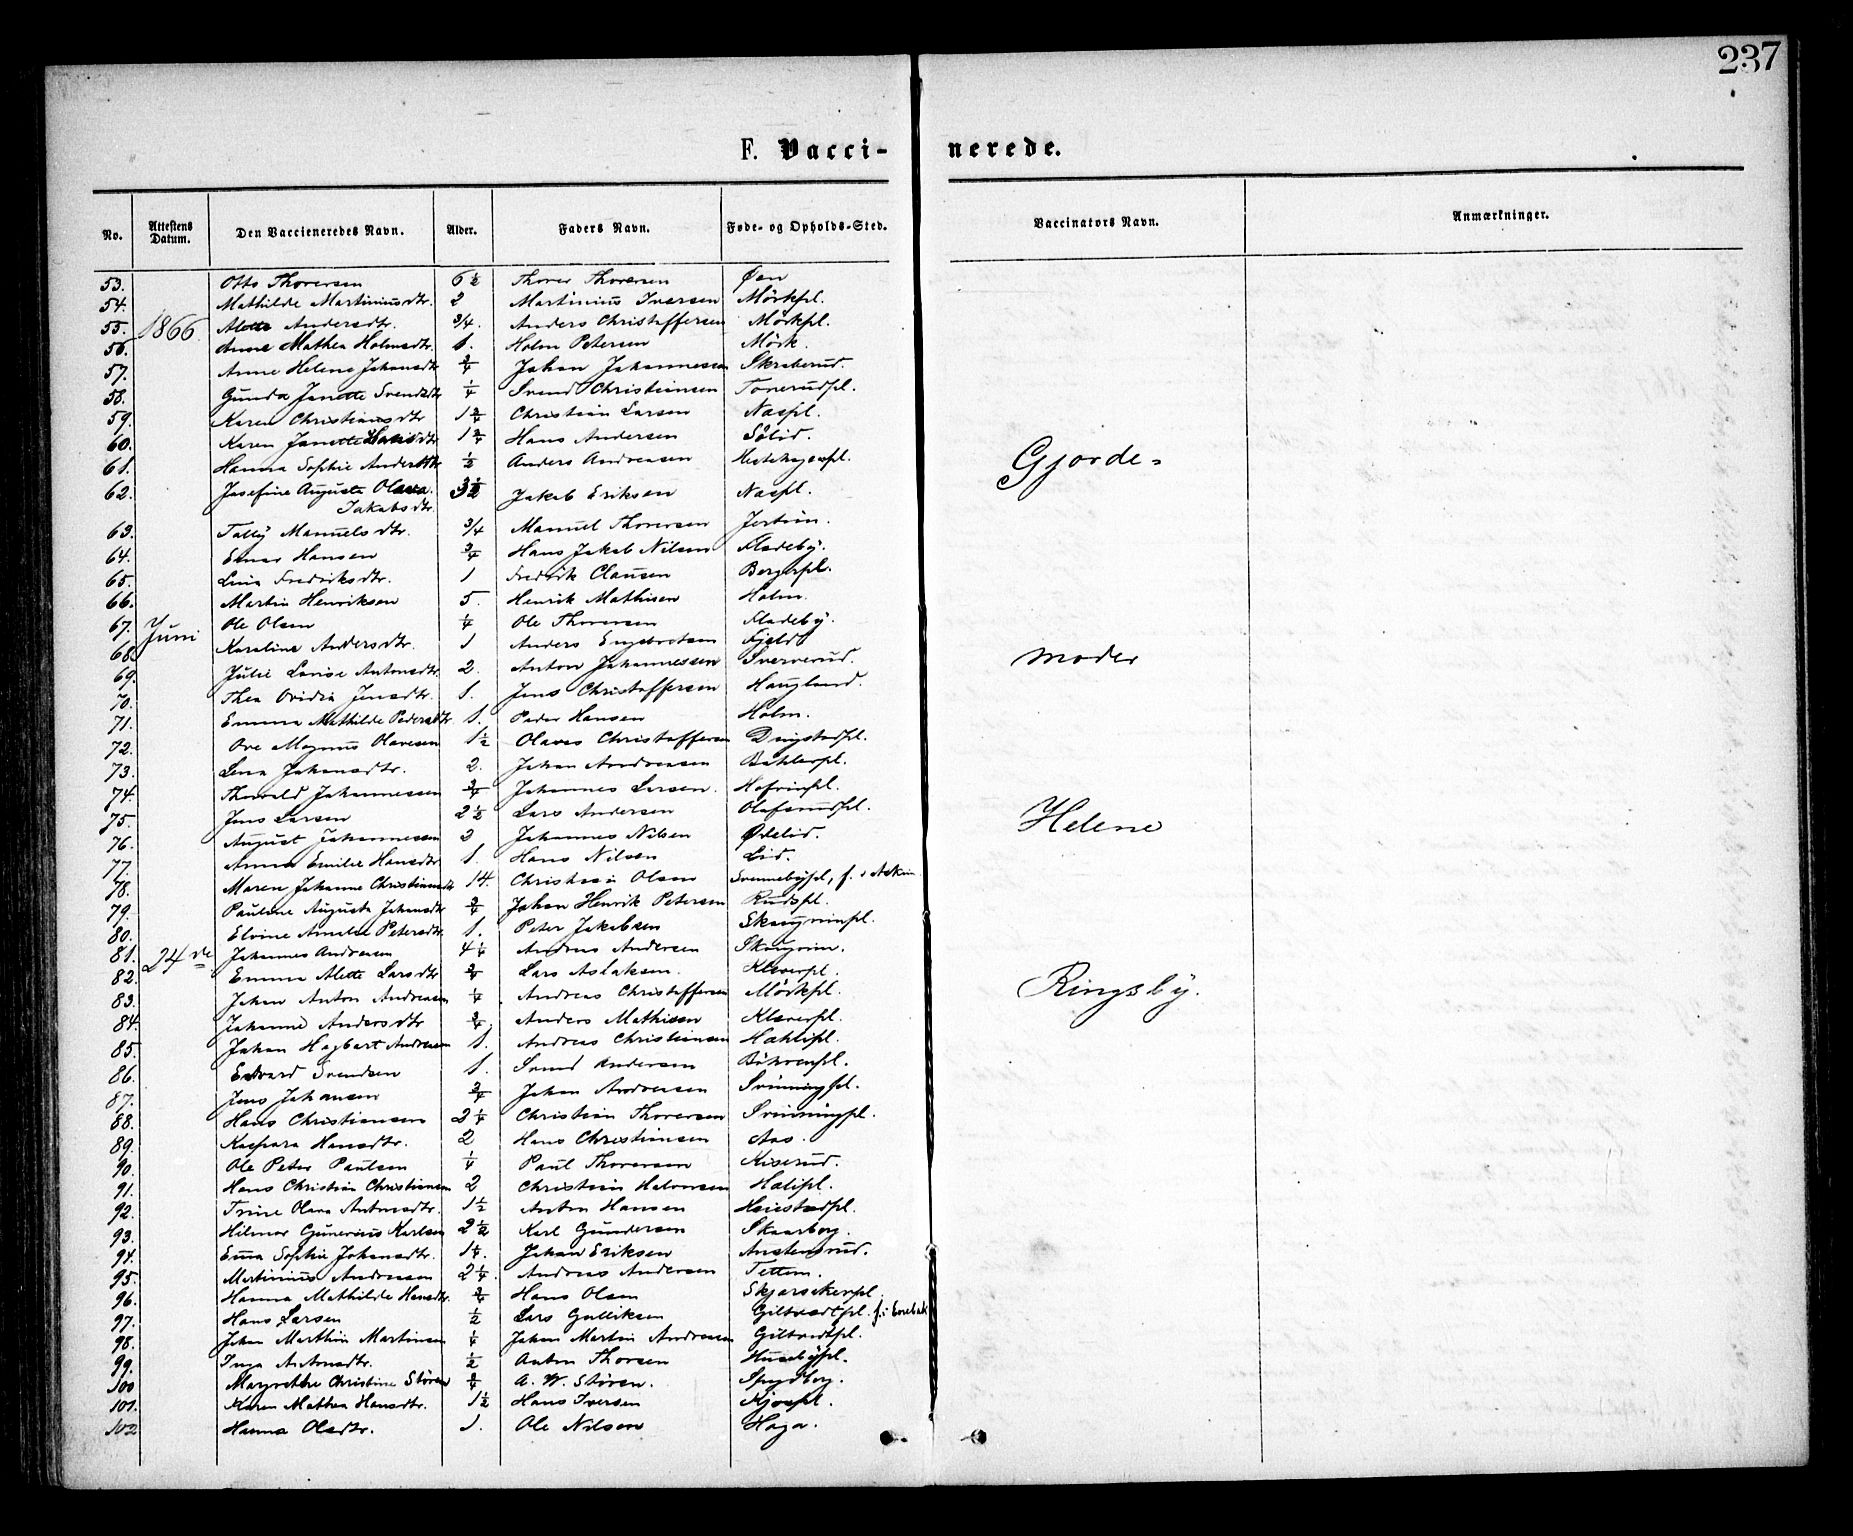 237
F. Vacci- nerede.
No. Attestens Datum. Den Vaccineredes Navn. Alder. Faders Navn. Føde- og Opholds-Sted. Vaccinators Navn. Anmærkninger.
53. Otto Thoresen 6 1/2 Thorer Thoresen Øen
54. Mathilde Martiniusdtr. 2 Martinius Iversen Mörkpl.
55. 1866 Alette Andersdtr. 3/4. Anders Christoffersen Mörkpl.
56. Anne Mathea Holmsdtr. 1. Holm Petersen Mörk.
57. Anne Helene Johansdtr 3/4 Johan Johannessen Skraberud.
58. Gunda Janette Svendsdtr 1/4 Svend Christiansen Tonerudpl.
59. Karen Christiansdtr 1 3/4 Christian Larsen Naspl.
60. Karen Janette Hansdtr 1 3/4 Hans Andersen Sølid.
61. Hanna Sophie Andersdtr 1/2 Anders Andreasen Gjorde-
62. Josefine Augusta Olava Jakobsdtr. 3 1/2 Jakob Eriksen Naspl.
63. Manuelsdtr. 3/4 Manuel Thoresen
64. Einar Hansen 3/4 Hans Jakob Nilsen Fladeby.
65. Lina Fredriksdtr. 1 Fredrik Clausen Bergerpl.
66. Martin Henriksen 5. Henrik Mathisen Holm.
67. Juni Ole Olsen 1/4 Ole Thoresen Fladeby.
68. Karoline Andersdtr. 1 Anders Engebretsen Fjeld moder
69. Julie Lovise Antonsdtr. 2. Anton Johannessen Sververud.
70. Thea Ovidia Jensdtr. 1. Jens Christoffersen Haugland.
71. Emma Mathilde Pedersdtr. 1. Peder Hansen Holm.
72. Ove Magnus Olavesen 1 1/2 Olaves Christoffersen Dingstadpl.
73. Lena Johansdtr. 2. Johan Andreasen Bøhlerpl.
74. Thorvald Johannessen 3/4 Johannes Larsen. Hofvinpl.
75. Jens Larsen 2 1/2 Lars Andersen Olafsrudpl. Helene
76. August Johannessen 2 Johannes Nilsen Ødelid.
77. Anna Emilie Hansdtr 1. Hans Nilsen Lid.
78. Maren Johanne Christiansdtr 14. Christian Olsen Svennebypl, f. i Askim
79. Pauline Augusta Johansdtr 3/4 Johan Henrik Petersen Rudspl.
80. Elvine Amalie Petersdtr 1. Peter Jakobsen Skaugrimpl.
81. 24de Johannes Andreasen 4 1/4 Andreas Andersen Skaugrim.
82. Emma Alette Larsdtr 3/4 Lars Aslaksen. Klæverpl.
83. Johan Anton Andreasen 1/4 Andreas Christoffersen Mörkpl. Ringsby.
84. Johanne Andersdtr 3/4. Anders Mathisen Klæverpl.
85. Johan Hagbart Andreasen 1. Andreas Christiansen Hæhlipl.
86. Edvard Svendsen 1. Svend Andersen
87. Jens Johansen 3/4 Johan Andreasen Svinningpl.
88. Hans Christiansen 2 1/4 Christian Thoresen Svinningpl.
89. Kaspara Hansdtr. 2 Hans Christiansen Aas.
90. Ole Peter Paulsen 1/4 Paul Thoresen Kiserud.
91. Hans Christian Christiansen 2 Christian Halvorsen Halipl.
92. Trine Olava Antonsdtr. 1 1/2 Anton Hansen Heiestadpl.
93. Hilmar Gunerius Karlsen 2 1/2 Karl Gundersen Skaarborg.
94. Emma Sophie Johansdtr. 1 1/4. Johan Eriksen Anstensrud.
95. Martinius Andreasen 2 1/4. Andreas Andersen Tettem.
96. Hanna Mathilde Hansdtr. 3/4 Hans Olsen Skjørsakerpl.
97. Hans Larsen 1/2 Lars Gulliksen Giltvedtpl. f. i Enebak
98. Johan Marthin Martinsen 1/4 Johan Martin Andreasen Giltvedtpl.
99. Inga Antonsdtr. 1/2 Anton Thorsen Husebypl.
100 Margrethe Christine Stören 3/4 A. W. Stören. Spydberg.
101. Karen Mathea Hansdtr. 1 1/2 Hans Iversen
102 Hanna Olsdtr. 1. Ole Nilsen Haga.